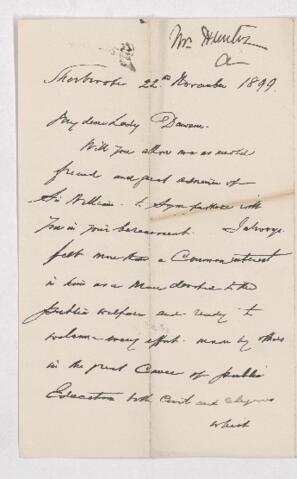 Mr Hunter
Sherbrooke 22nd November 1899
My dear Lady Dawson
Will you allow me as an old
friend and great admirer of
Sir William to sympathise with
you in your bereavement. I always
felt more than a common interest
in him as a man devoted to the
public welfare and ready to
welcome every effort made by others
in the great cause of public
Education both civil and religious
which